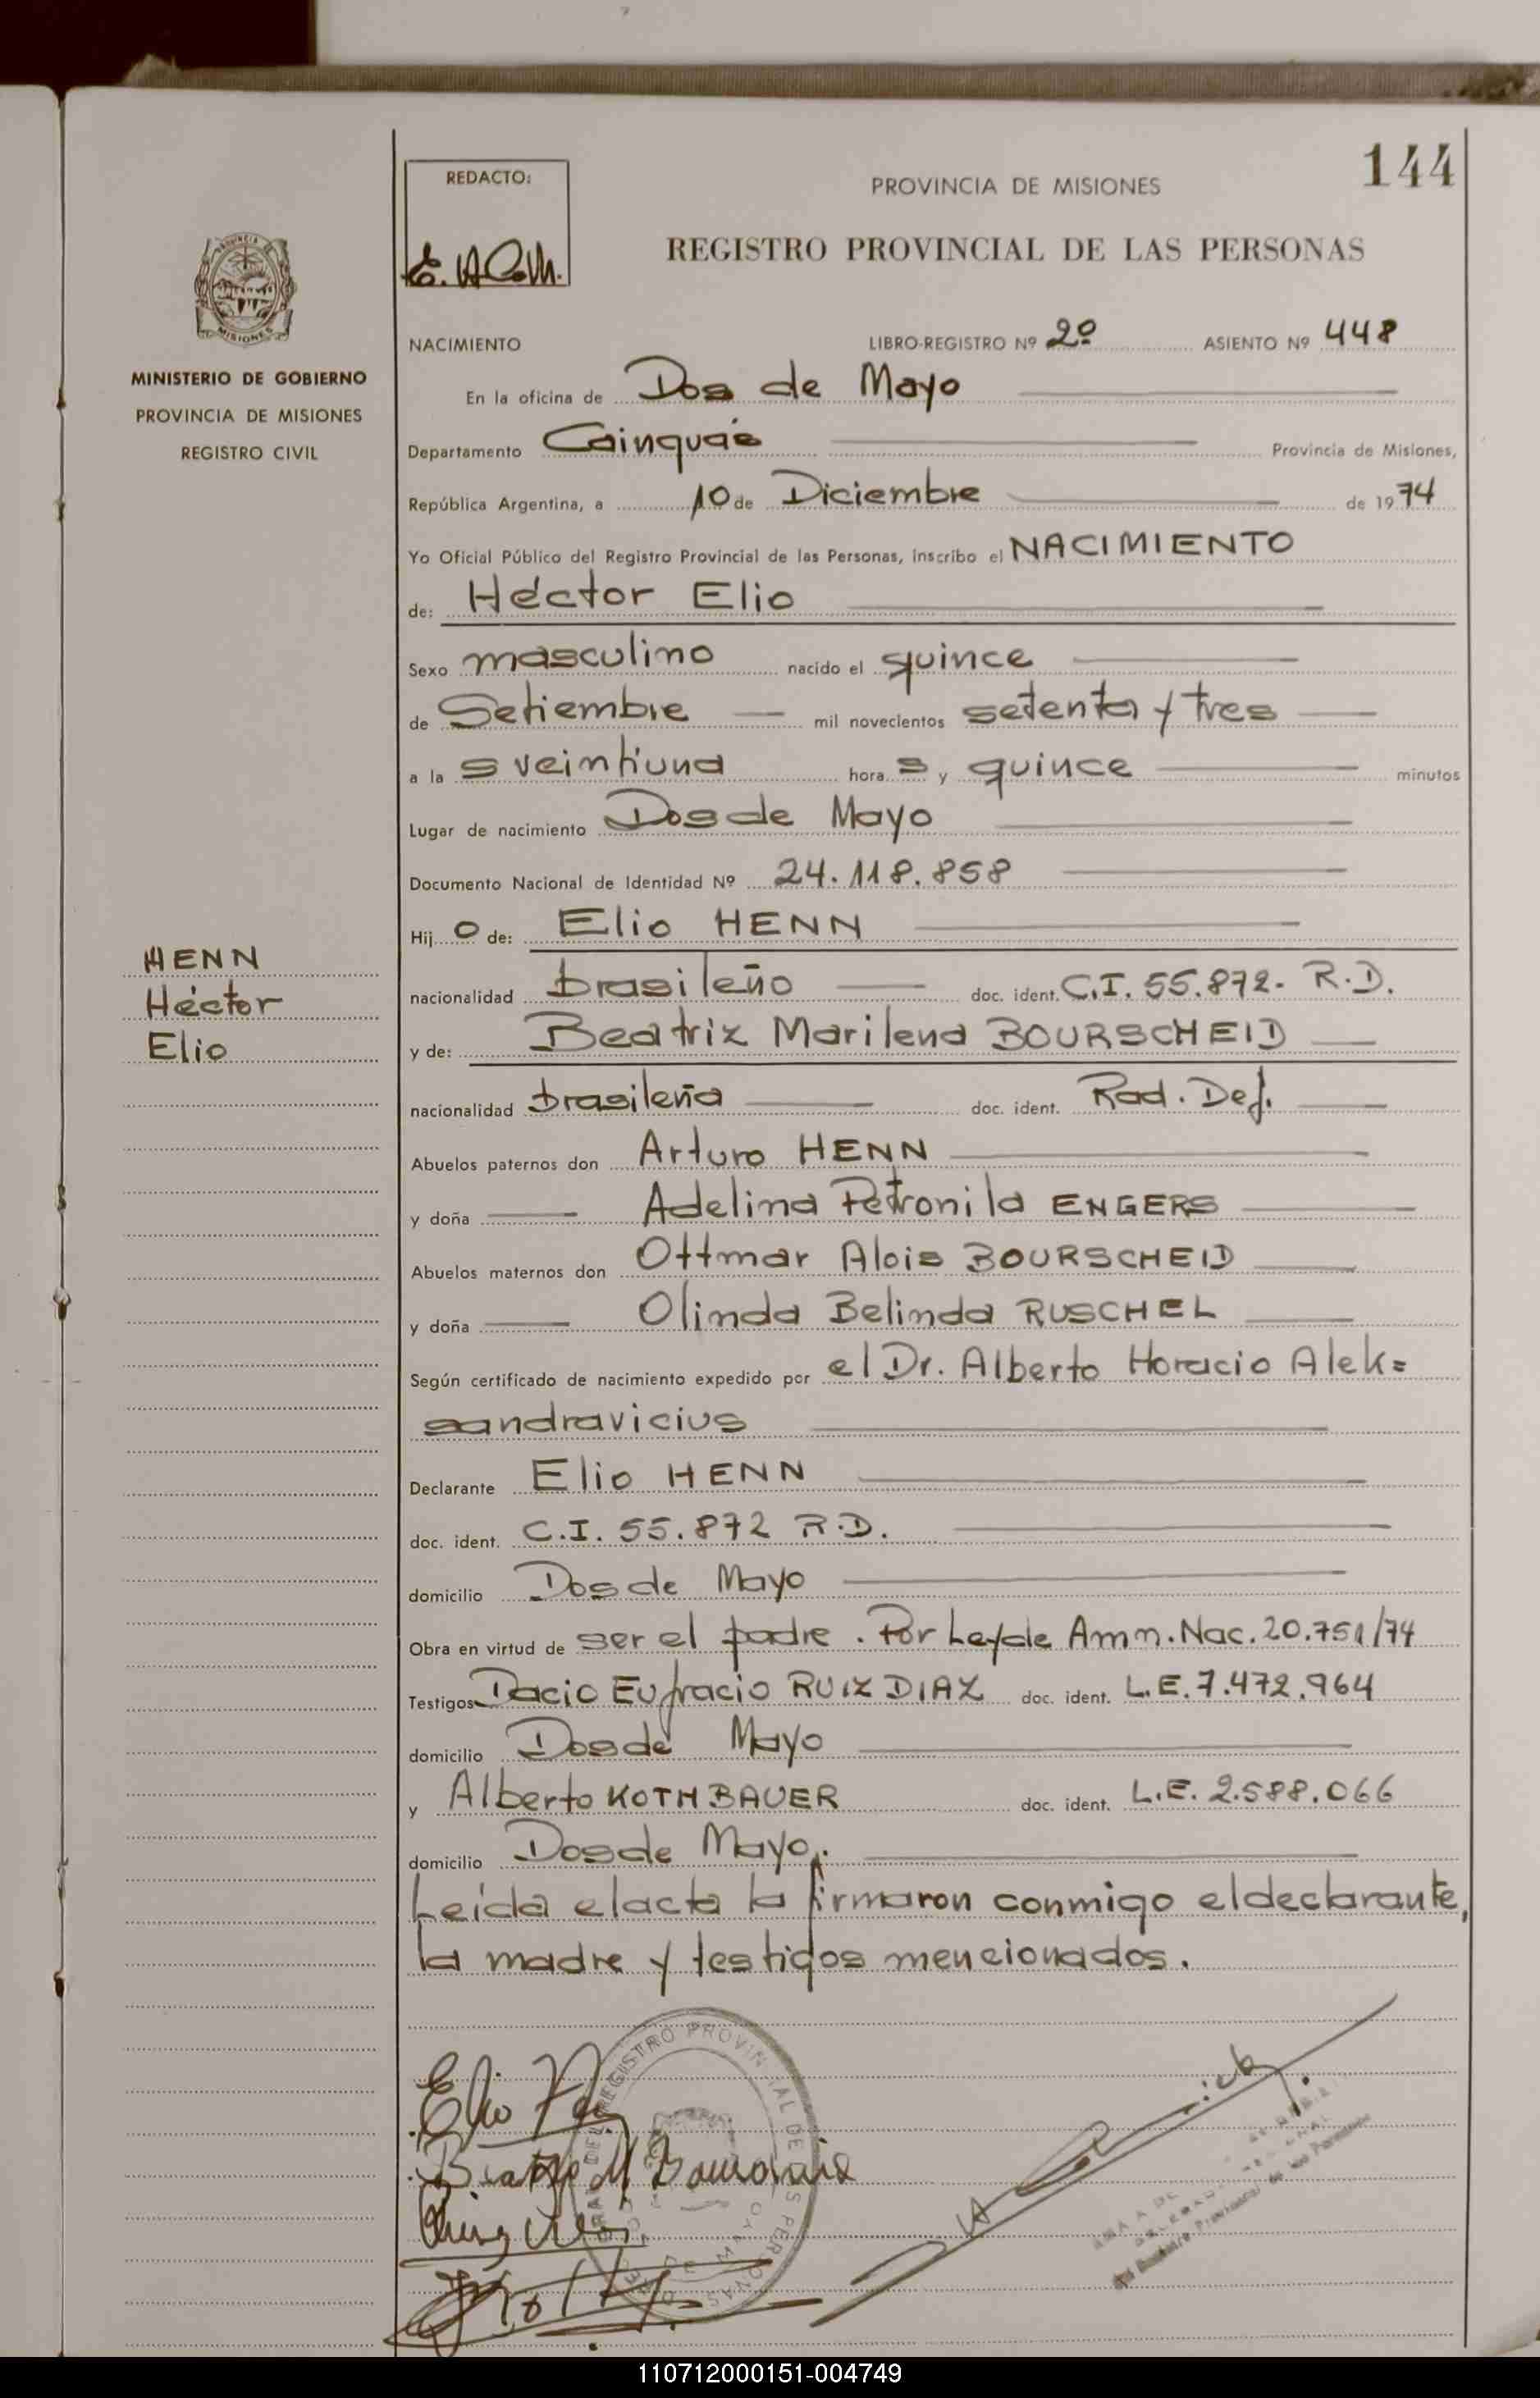 144
REDACTO:
PROVINCIA DE MISIONES
REGISTRO PROVINCIAL DE LAS PERSONAS
MISIONES
MINISTERIO DE GOBIERNO
PROVINCIA DE MISIONES
REGISTRO CIVIL
NACIMIENTO LIBRO-REGISTRO Nº 2º ASIENTO Nº 448
En la oficina de Dos de Mayo
Departamento Cainguás Provincia de Misiones,
República Argentina, a 10 de Diciembre de 1974
Yo Oficial Público del Registro Provincial de las Personas, inscribo el NACIMIENTO
de: Héctor Elio
Sexo masculino nacido el quince
de Setiembre mil novecientos setenta y tres
a la s veintiuna hora s y quince minutos
Lugar de nacimiento Dos de Mayo
Documento Nacional de Identidad Nº 24.118.858
Hij o de: Elio HENN
HENN
Héctor
Elio
nacionalidad brasileño doc. ident. C.I. 55.872. R.D.
y de: Beatriz Marilena BOURSCHEID
nacionalidad brasileña doc. ident. Rad. Def.
Abuelos paternos don Arturo HENN
y doña Adelina Petronila ENGERS
Abuelos maternos don Ottmar Alois BOURSCHEID
y doña Olinda Belinda RUSCHEL
Según certificado de nacimiento expedido por el Dr. Alberto Horacio Alek=
sandravicius
Declarante Elio HENN
doc. ident. C.I. 55.872 R.D.
domicilio Dos de Mayo
Obra en virtud de ser el padre. Por Ley de Amn. Nac. 20.751/74
Testigos Dacio Eufracio RUIZ DIAZ doc. ident. L.E. 7.472.964
domicilio Dos de Mayo
y Alberto KOTHBAUER doc. ident. L.E. 2.588.066
domicilio Dos de Mayo.
Leída el acta la firmaron conmigo el declarante,
la madre y testigos mencionados.
Elio
REGISTRO PROVINCIAL DE LAS PERSONAS
110712000151-004749